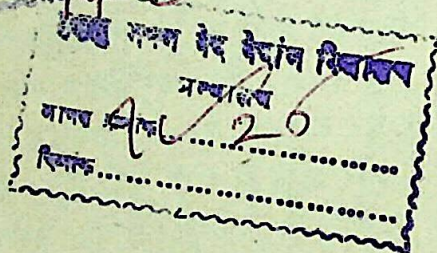 भवन वेद वेदांग विद्यालय
ग्रन्थालय
आगत क्रमांक.... 20 ....................
दिनांक........................................